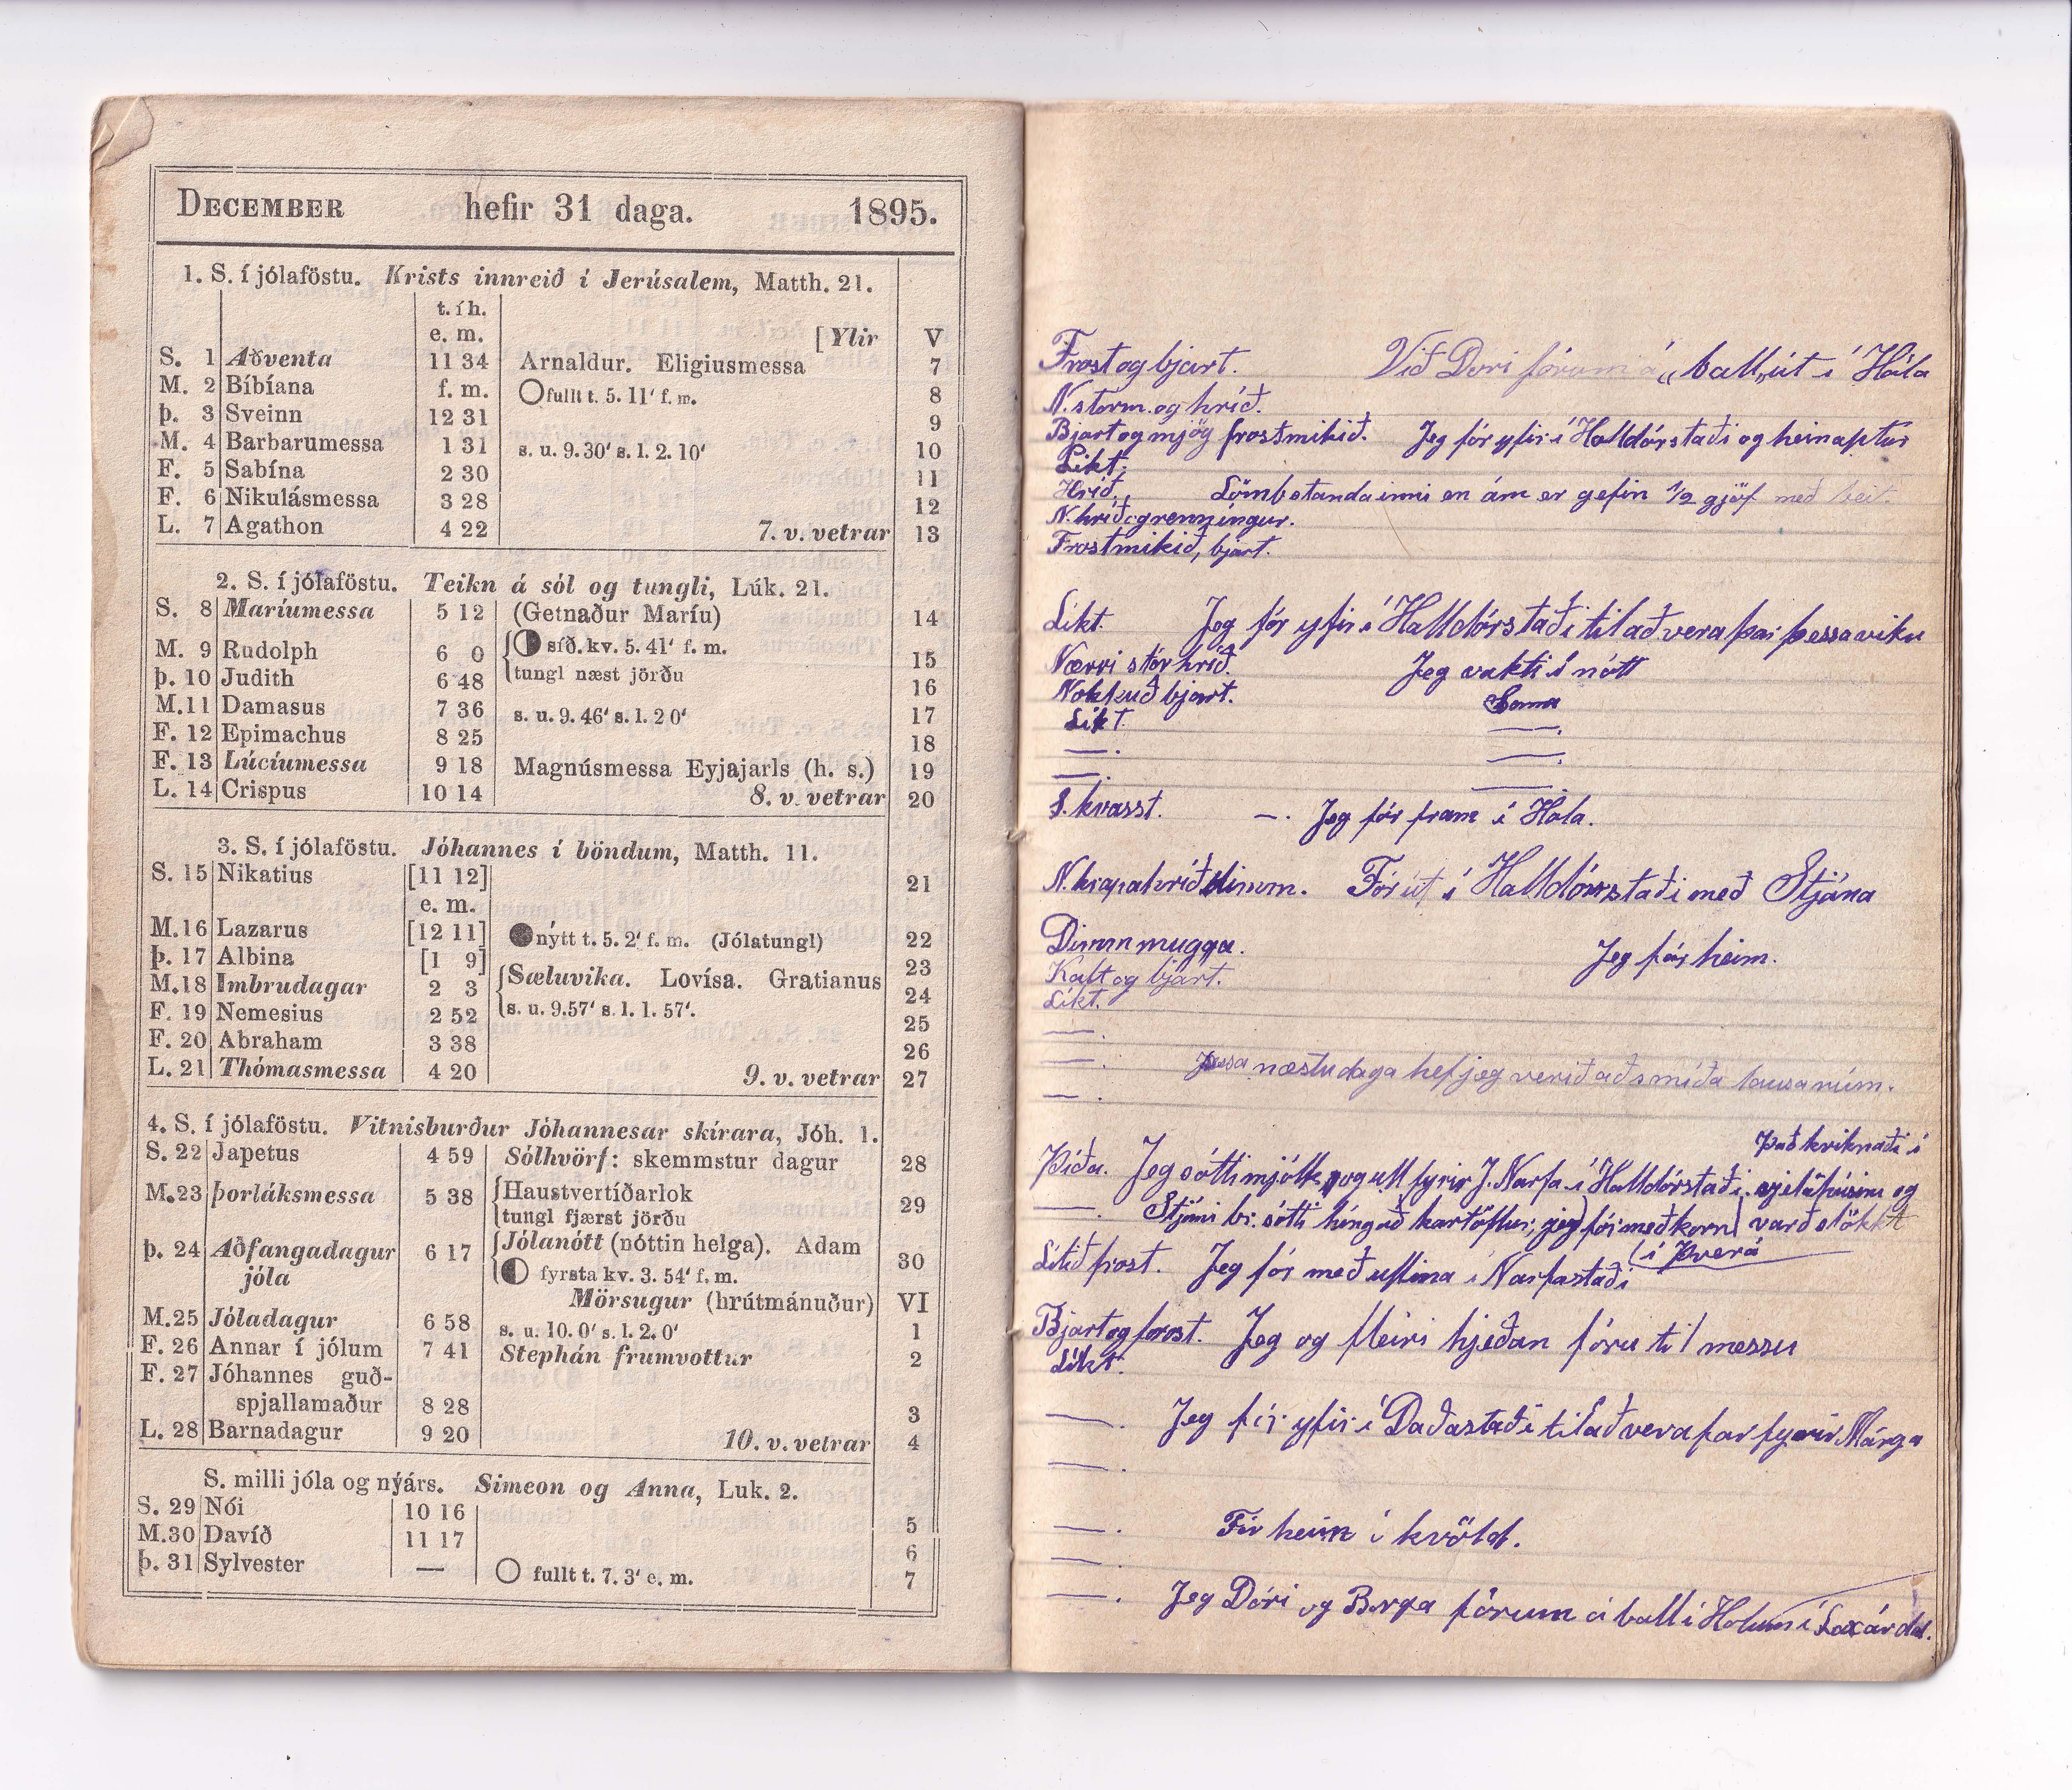 DECEMBER hefir 31 daga. 1895.
1. S. í jólaföstu. Krists innreið í Jerúsalem, Matth. 21.
t. í h.
e. m. [Ylir V
S. 1 Aðventa 11 34 Arnaldur. Eligiusmessa 7
M. 2 Bíbíana f. m. fullt t. 5. 11' f. m. 8
Þ. 3 Sveinn 12 31 9
M. 4 Barbarumessa 1 31 s. u. 9. 30' s. l. 2. 10' 10
F. 5 Sabína 2 30 11
F. 6 Nikulásmessa 3 28 12
L. 7 Agathon 4 22 7. v. vetrar 13
2. S. í jólaföstu. Teikn á sól og tungli, Lúk. 21.
S. 8 Maríumessa 5 12 (Getnaður Maríu) 14
M. 9 Rudolph 6 0 síð. kv. 5. 41' f. m. 15
Þ. 10 Judith 6 48 tungl næst jörðu 16
M. 11 Damasus 7 36 s. u. 9. 46' s. l. 2 0' 17
F. 12 Epimachus 8 25 18
F. 13 Lúcíumessa 9 18 Magnúsmessa Eyjajarls (h. s.) 19
L. 14 Crispus 10 14 8. v. vetrar 20
3. S. í jólaföstu. Jóhannes í böndum, Matth. 11.
S. 15 Nikatius [11 12] 21
e. m.
M. 16 Lazarus [12 11] nýtt t. 5. 2' f. m. (Jólatungl) 22
Þ. 17 Albina [1 9] 23
M. 18 Imbrudagar 2 3 Sæluvika. Lovísa. Gratianus 24
F. 19 Nemesius 2 52 s. u. 9.57' s. l. 1. 57'. 25
F. 20 Abraham 3 38 26
L. 21 Thómasmessa 4 20 9. v. vetrar 27
4. S. í jólaföstu. Vitnisburður Jóhannesar skírara, Jóh. 1.
S. 22 Japetus 4 59 Sólhvörf: skemmstur dagur 28
M. 23 Þorláksmessa 5 38 Haustvertíðarlok 29
tungl fjærst jörðu
Þ. 24 Aðfangadagur 6 17 Jólanótt (nóttin helga). Adam 30
jóla fyrsta kv. 3. 54' f. m.
Mörsugur (hrútmánuður) VI
M. 25 Jóladagur 6 58 s. u. 10. 0' s. l. 2. 0' 1
F. 26 Annar í jólum 7 41 Stephán frumvottur 2
F. 27 Jóhannes guð-
spjallamaður 8 28 3
L. 28 Barnadagur 9 20 10. v. vetrar 4
S. milli jóla og nýárs. Simeon og Anna, Luk. 2.
S. 29 Nói 10 16 5
M. 30 Davíð 11 17 6
Þ. 31 Sylvester — fullt t. 7. 3' e. m. 7
Frost og bjart. Við Dori fórum á „ball„ út í Hóla
N. storm. og hríð.
Bjart og mjög frostmikið. Jeg fór yfir í Halldórstaði og heim aptur
Líkt.
Hríð. Lömb standa inni en ám er gefin 1/2 gjöf með beit.
N. hríðogrenningur.
Frostmikið, bjart.
Líkt. Jeg fór yfir í Halldórstaði til að vera þar þessa viku
Nærri stór hríð. Jeg vakti í nótt
Nokkuð bjart. Sama
Líkt. —
—. —.
—. —.
S. kvasst. —. Jeg fór fram í Hóla.
N. krapahríð dimm. Fór út í Halldórsstaði með Stjána
Dimm mugga. Jeg fór heim.
Kalt og bjart.
Líkt.
—.
—. Þessa næstu daga hef jeg verið að smíða lausa rúm.
—.
Það kviknaði í
Þíða. Jeg sótti mjólk og ull fyrir J. Narfa í Halldórstaði. og
—. Stjáni br. sótti híngað kartöflur, jeg fór með korn varð slökkt
í Þverá
Lítið frost. Jeg fór með ullina í Narfastaði
Bjart og frost. Jeg og fleiri hjeðan fóru til messu
Líkt.
—. Jeg fór yfir í Daðastaði til að vera þar fyrir Márga
—.
—. Fór heim í kvöld.
—.
—. Jeg Dóri og Borga fórum á ball í Hólum í Laxárdal.